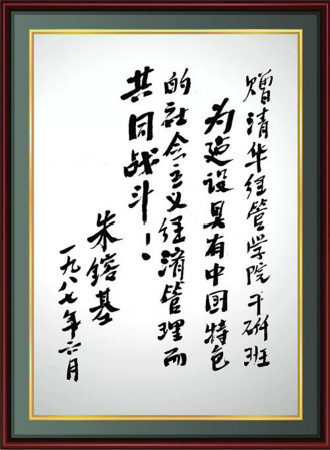 赠清华经管学院干研班
为建设具有中国特色
的社会主义经濟管理而
共同战斗！
朱镕基
一九八七年六月